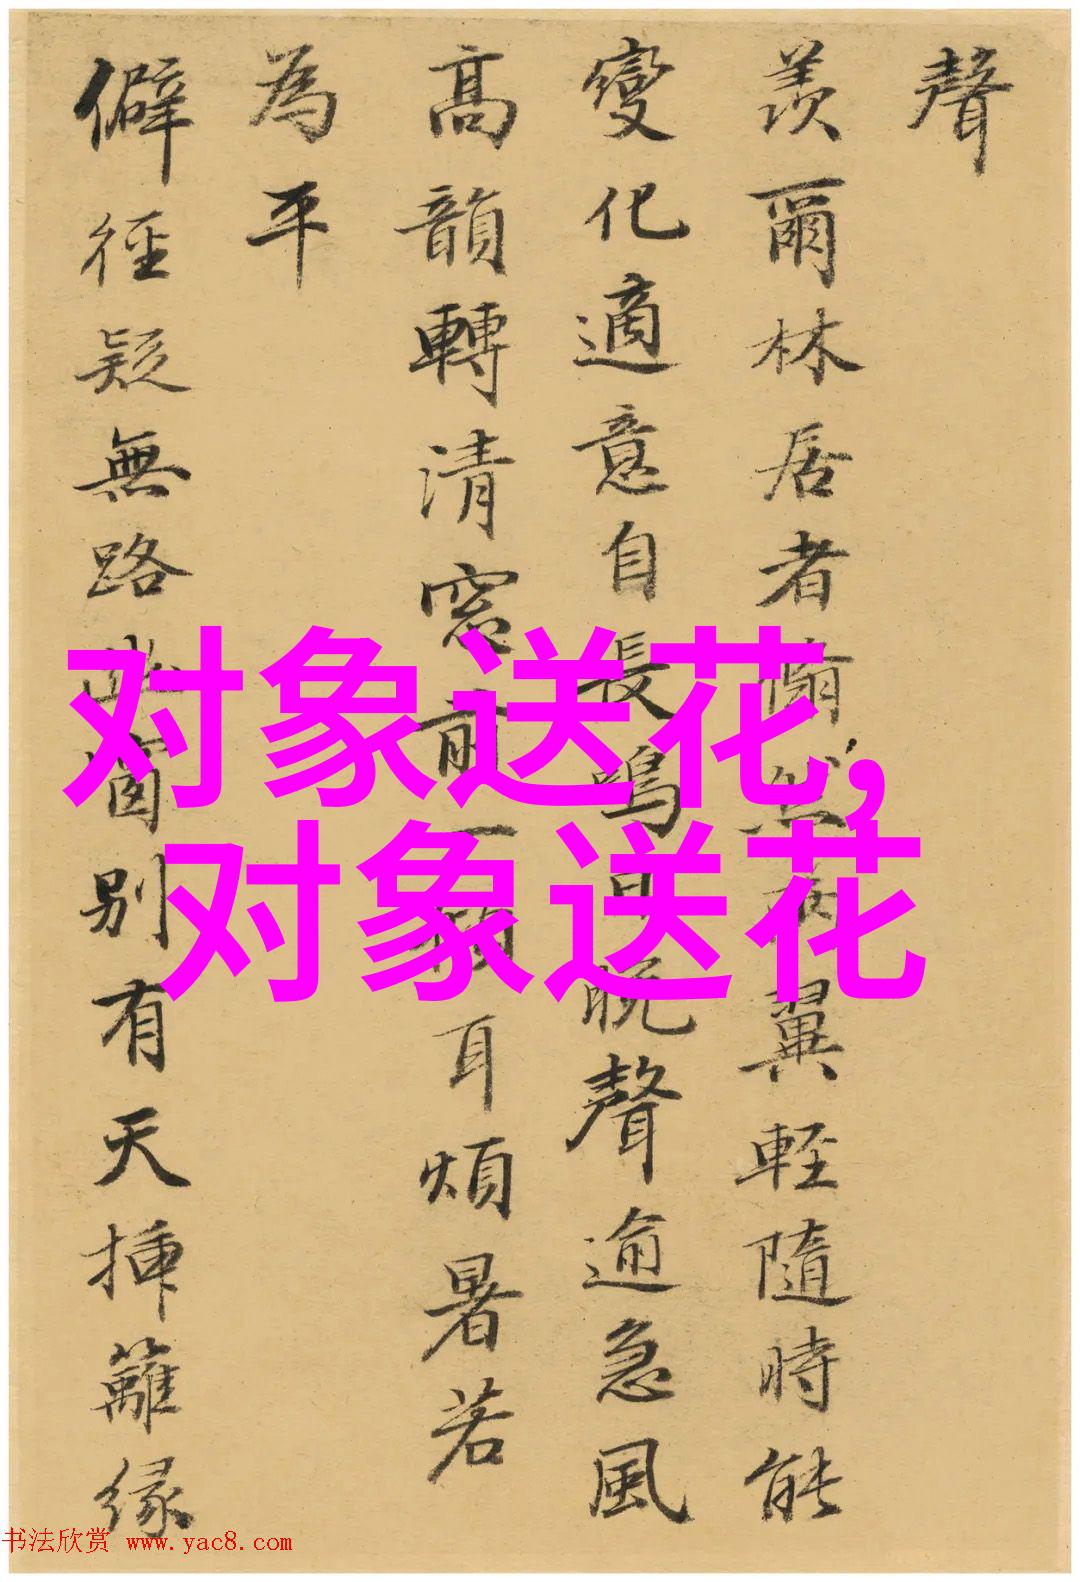 聲
羨爾林居者翛然兩翼輕隨時能
變化適意自長鳴日晚聲逾急風
高韻轉清窓前一傾耳煩暑若
為平
僻徑疑無路此窗別有天插籬緣
对象送花,
对象送花
书法欣赏 www.yac8.com